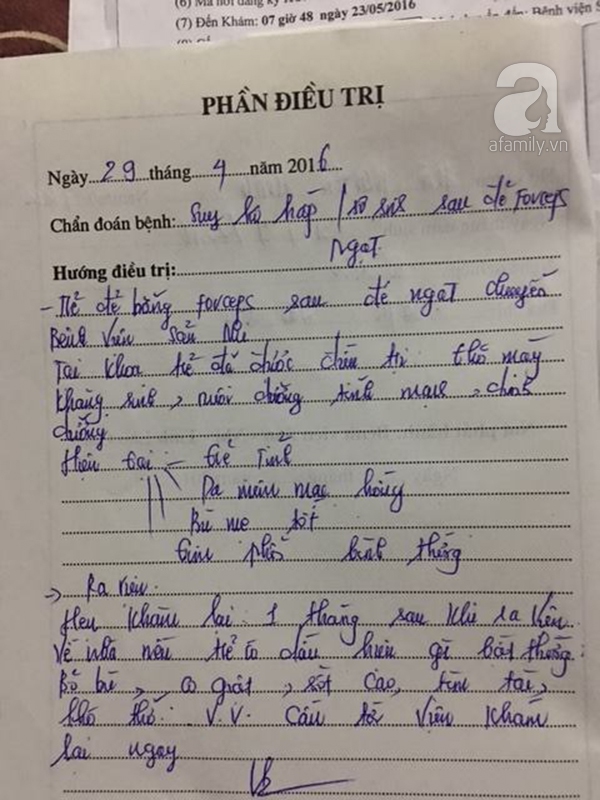 (7) Đến Khám: 07 giờ 48 ngày 23/05/2016
Bệnh viện S
a
afamily.vn
PHẦN ĐIỀU TRỊ
Ngày 29 tháng 4 năm 2016
Chẩn đoán bệnh: Suy hô hấp / sơ sinh sau đẻ Forceps
ngạt
Hướng điều trị:
- Trẻ đẻ bằng forceps sau đẻ ngạt chuyển
Bệnh viện sản Nhi
Tại khoa trẻ đã được điều trị thở máy
kháng sinh, nuôi dưỡng tĩnh mạch,
dưỡng
Hiện tại - trẻ tỉnh
Da niêm mạc hồng
Bú mẹ tốt
tim phổi bình thường
→ Ra viện.
Hẹn khám lại 1 tháng sau khi ra viện
Về nhà nếu trẻ có dấu hiệu gì bất thường
Bỏ bú, co giật, sốt cao, tím tái,
khó thở. V.V. Cần tới viện khám
lại ngay